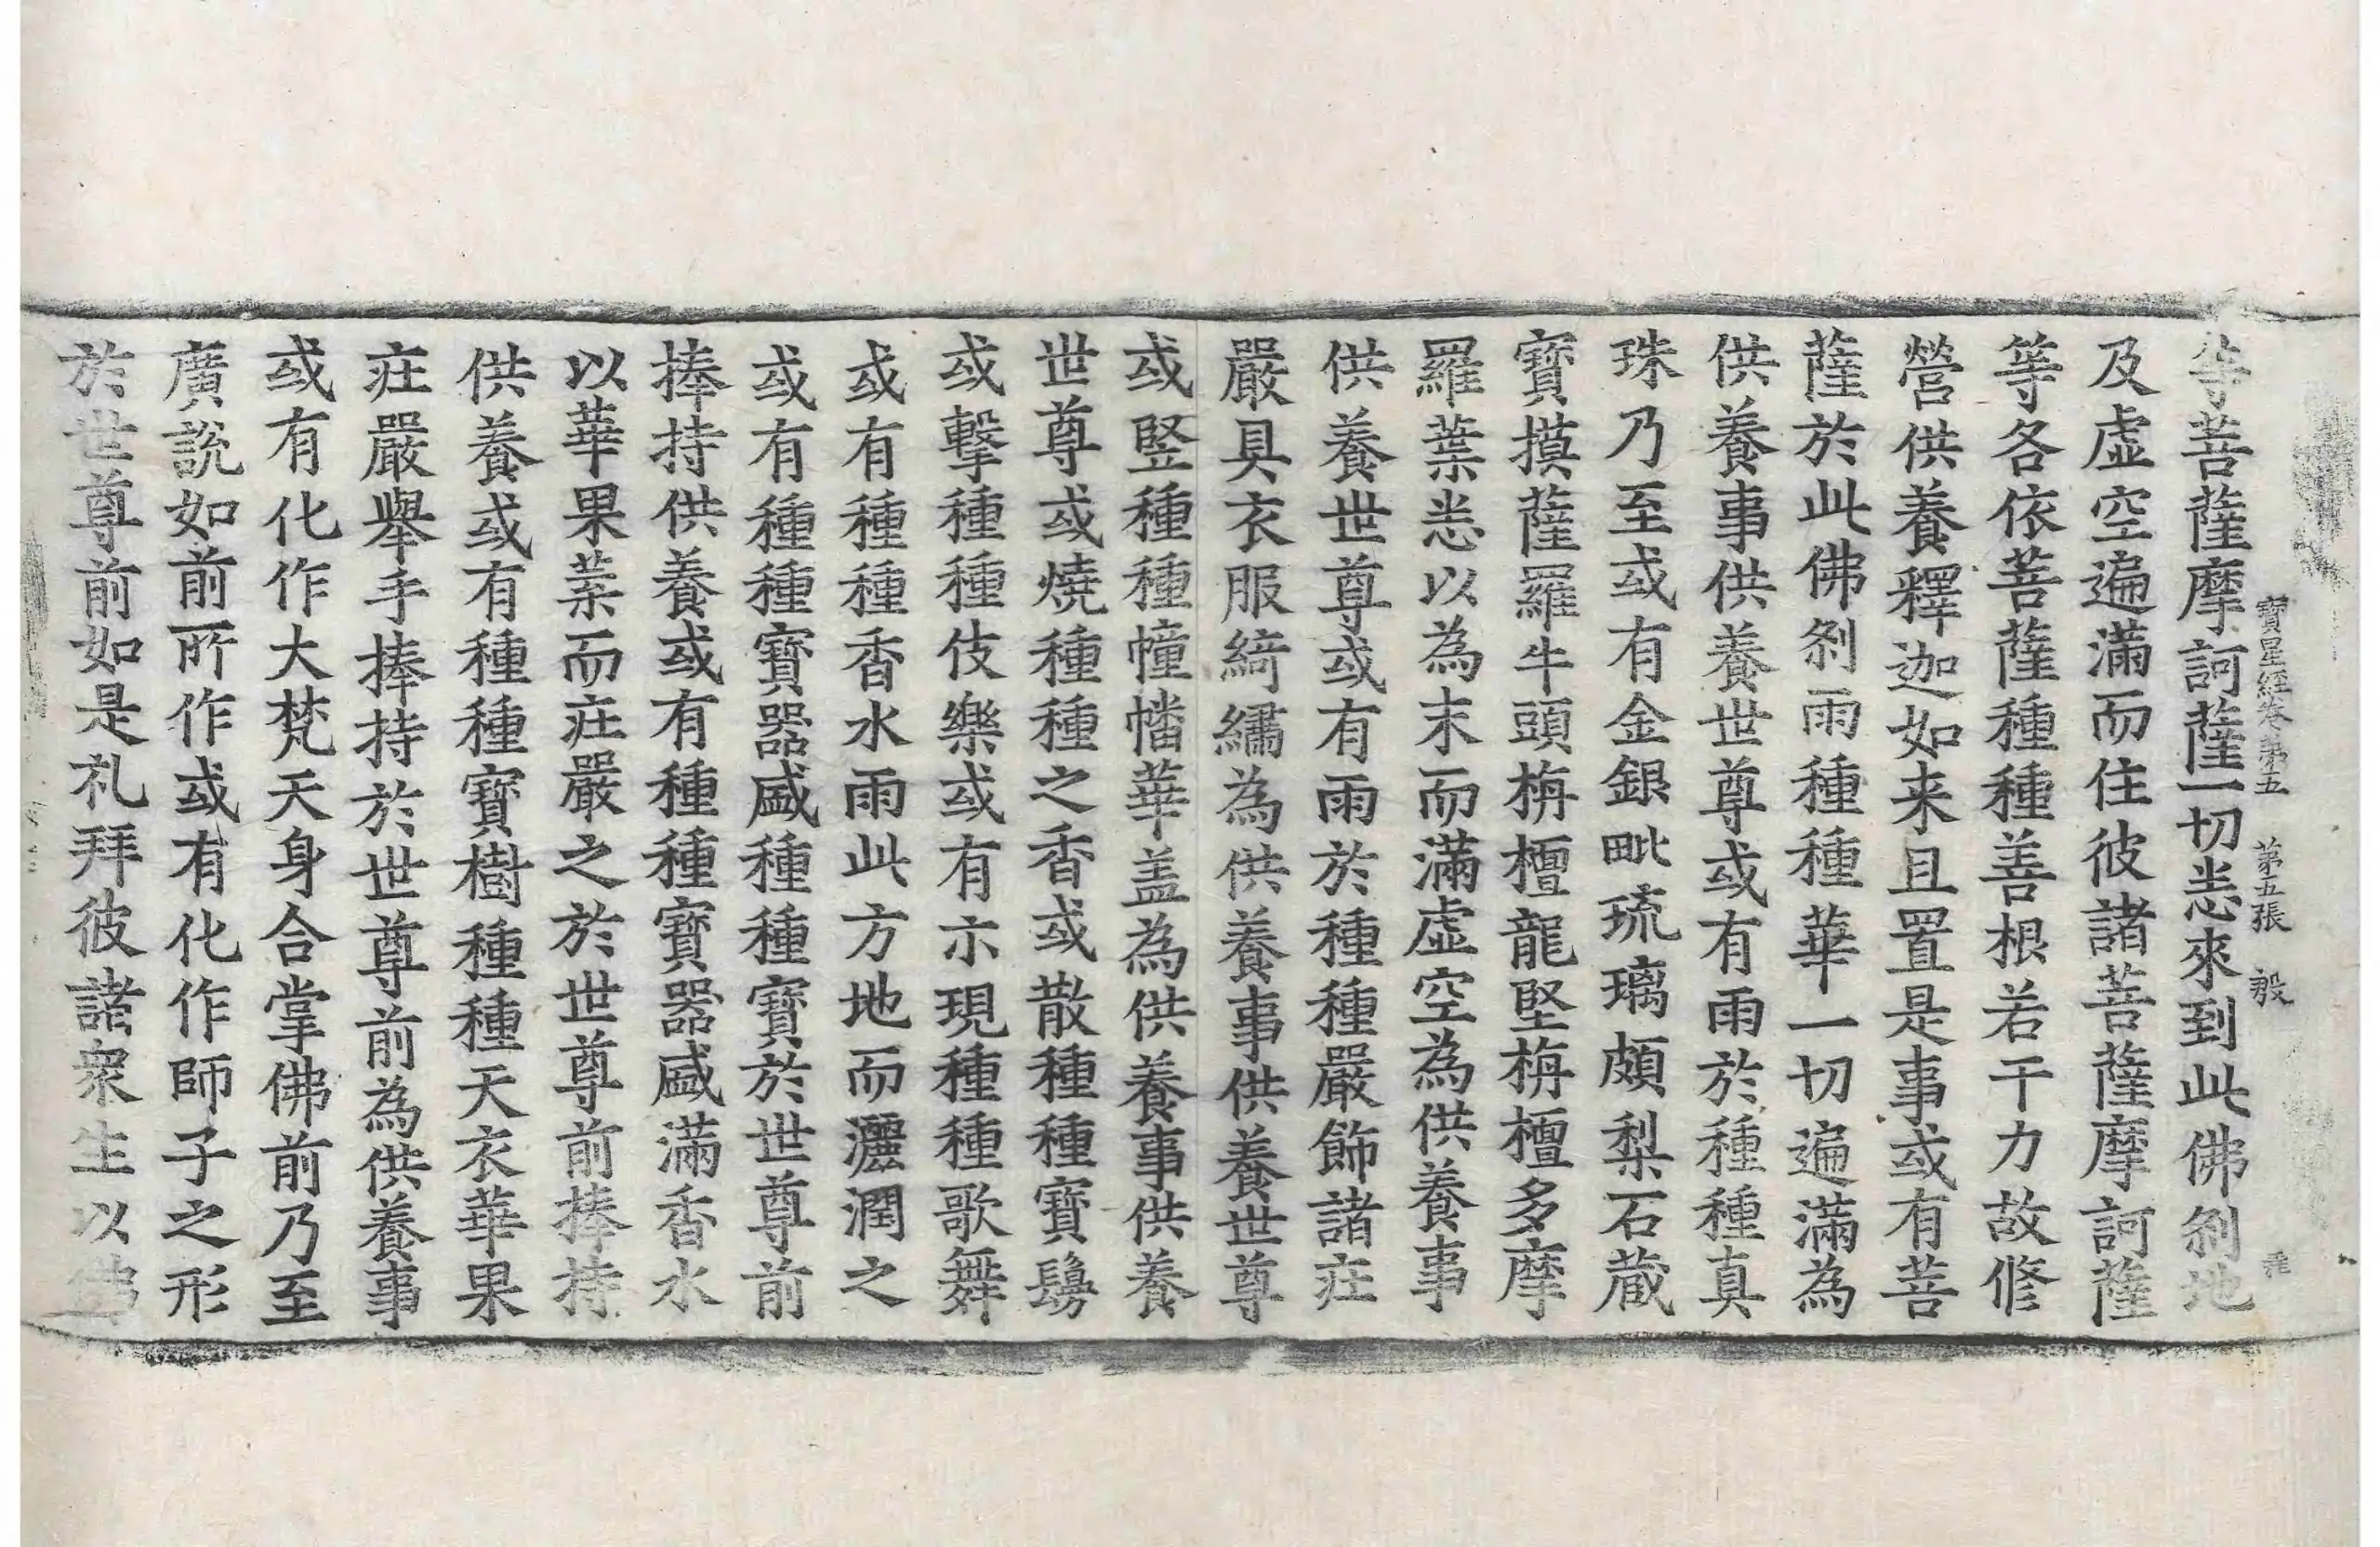 寶星經卷第五　第五張　毅
等菩薩摩訶薩一切悉來到此佛刹地
及虛空遍滿而住彼諸菩薩摩訶薩
等各依菩薩種種善根若干力故修
營供養釋迦如来且置是事或有菩
薩於此佛刹雨種種華一切遍滿為
供養事供養世尊或有雨於種種真
珠乃至或有金銀毗琉璃頗梨石蔵
寶摸薩羅牛頭栴檀龍堅栴檀多摩
羅葉悉以為末而滿虛空為供養事
供養世尊或有雨於種種嚴飾諸莊
嚴具衣服綺繡為供養事供養世尊
或竪種種幢幡華盖為供養事供養
世尊或燒種種之香或散種種寶鬘
或擊種種伎樂或有示現種種歌舞
或有種種香水雨此方地而灑潤之
或有種種寶器盛種種寶於世尊前
捧持供養或有種種寶器盛滿香水
以華果葉而莊嚴之於世尊前捧持
供養或有種種寶樹種種天衣華果
莊嚴舉手捧持於世尊前為供養事
或有化作大梵天身合掌佛前乃至
廣說如前所作或有化作師子之形
於世尊前如是礼拜彼諸衆生以佛